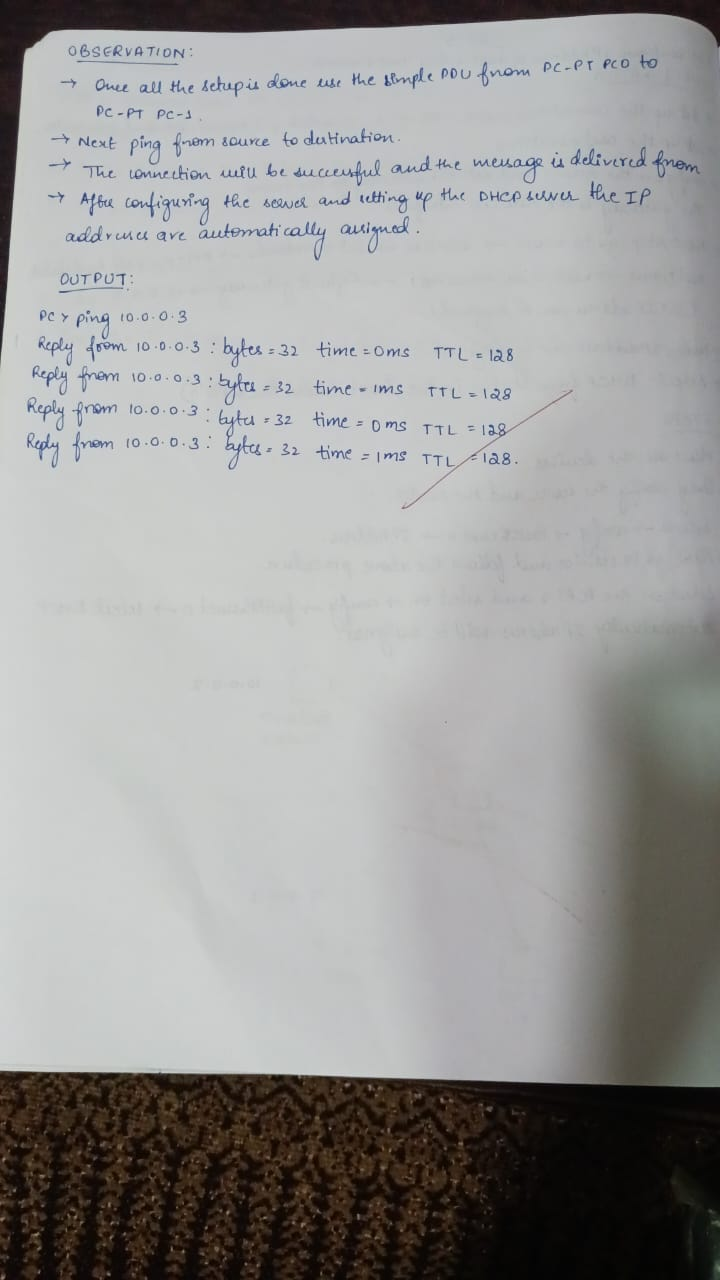 OBSERVATION:
→ Once all the setup is done use the simple PDU from PC-PT PC0 to
PC-PT PC-1.
→ Next ping from source to dutination.
→ The connection will be successful and the message is delivered from
→ After configuring the server and setting up the DHCP server the IP
addresses are automatically assigned.
OUTPUT:
PC> ping 10.0.0.3
Reply from 10.0.0.3 : bytes = 32 time = 0ms TTL = 128
Reply from 10.0.0.3 : bytes = 32 time = 1ms TTL = 128
Reply from 10.0.0.3 : bytes = 32 time = 0ms TTL = 128
Reply from 10.0.0.3 : bytes = 32 time = 1ms TTL = 128.